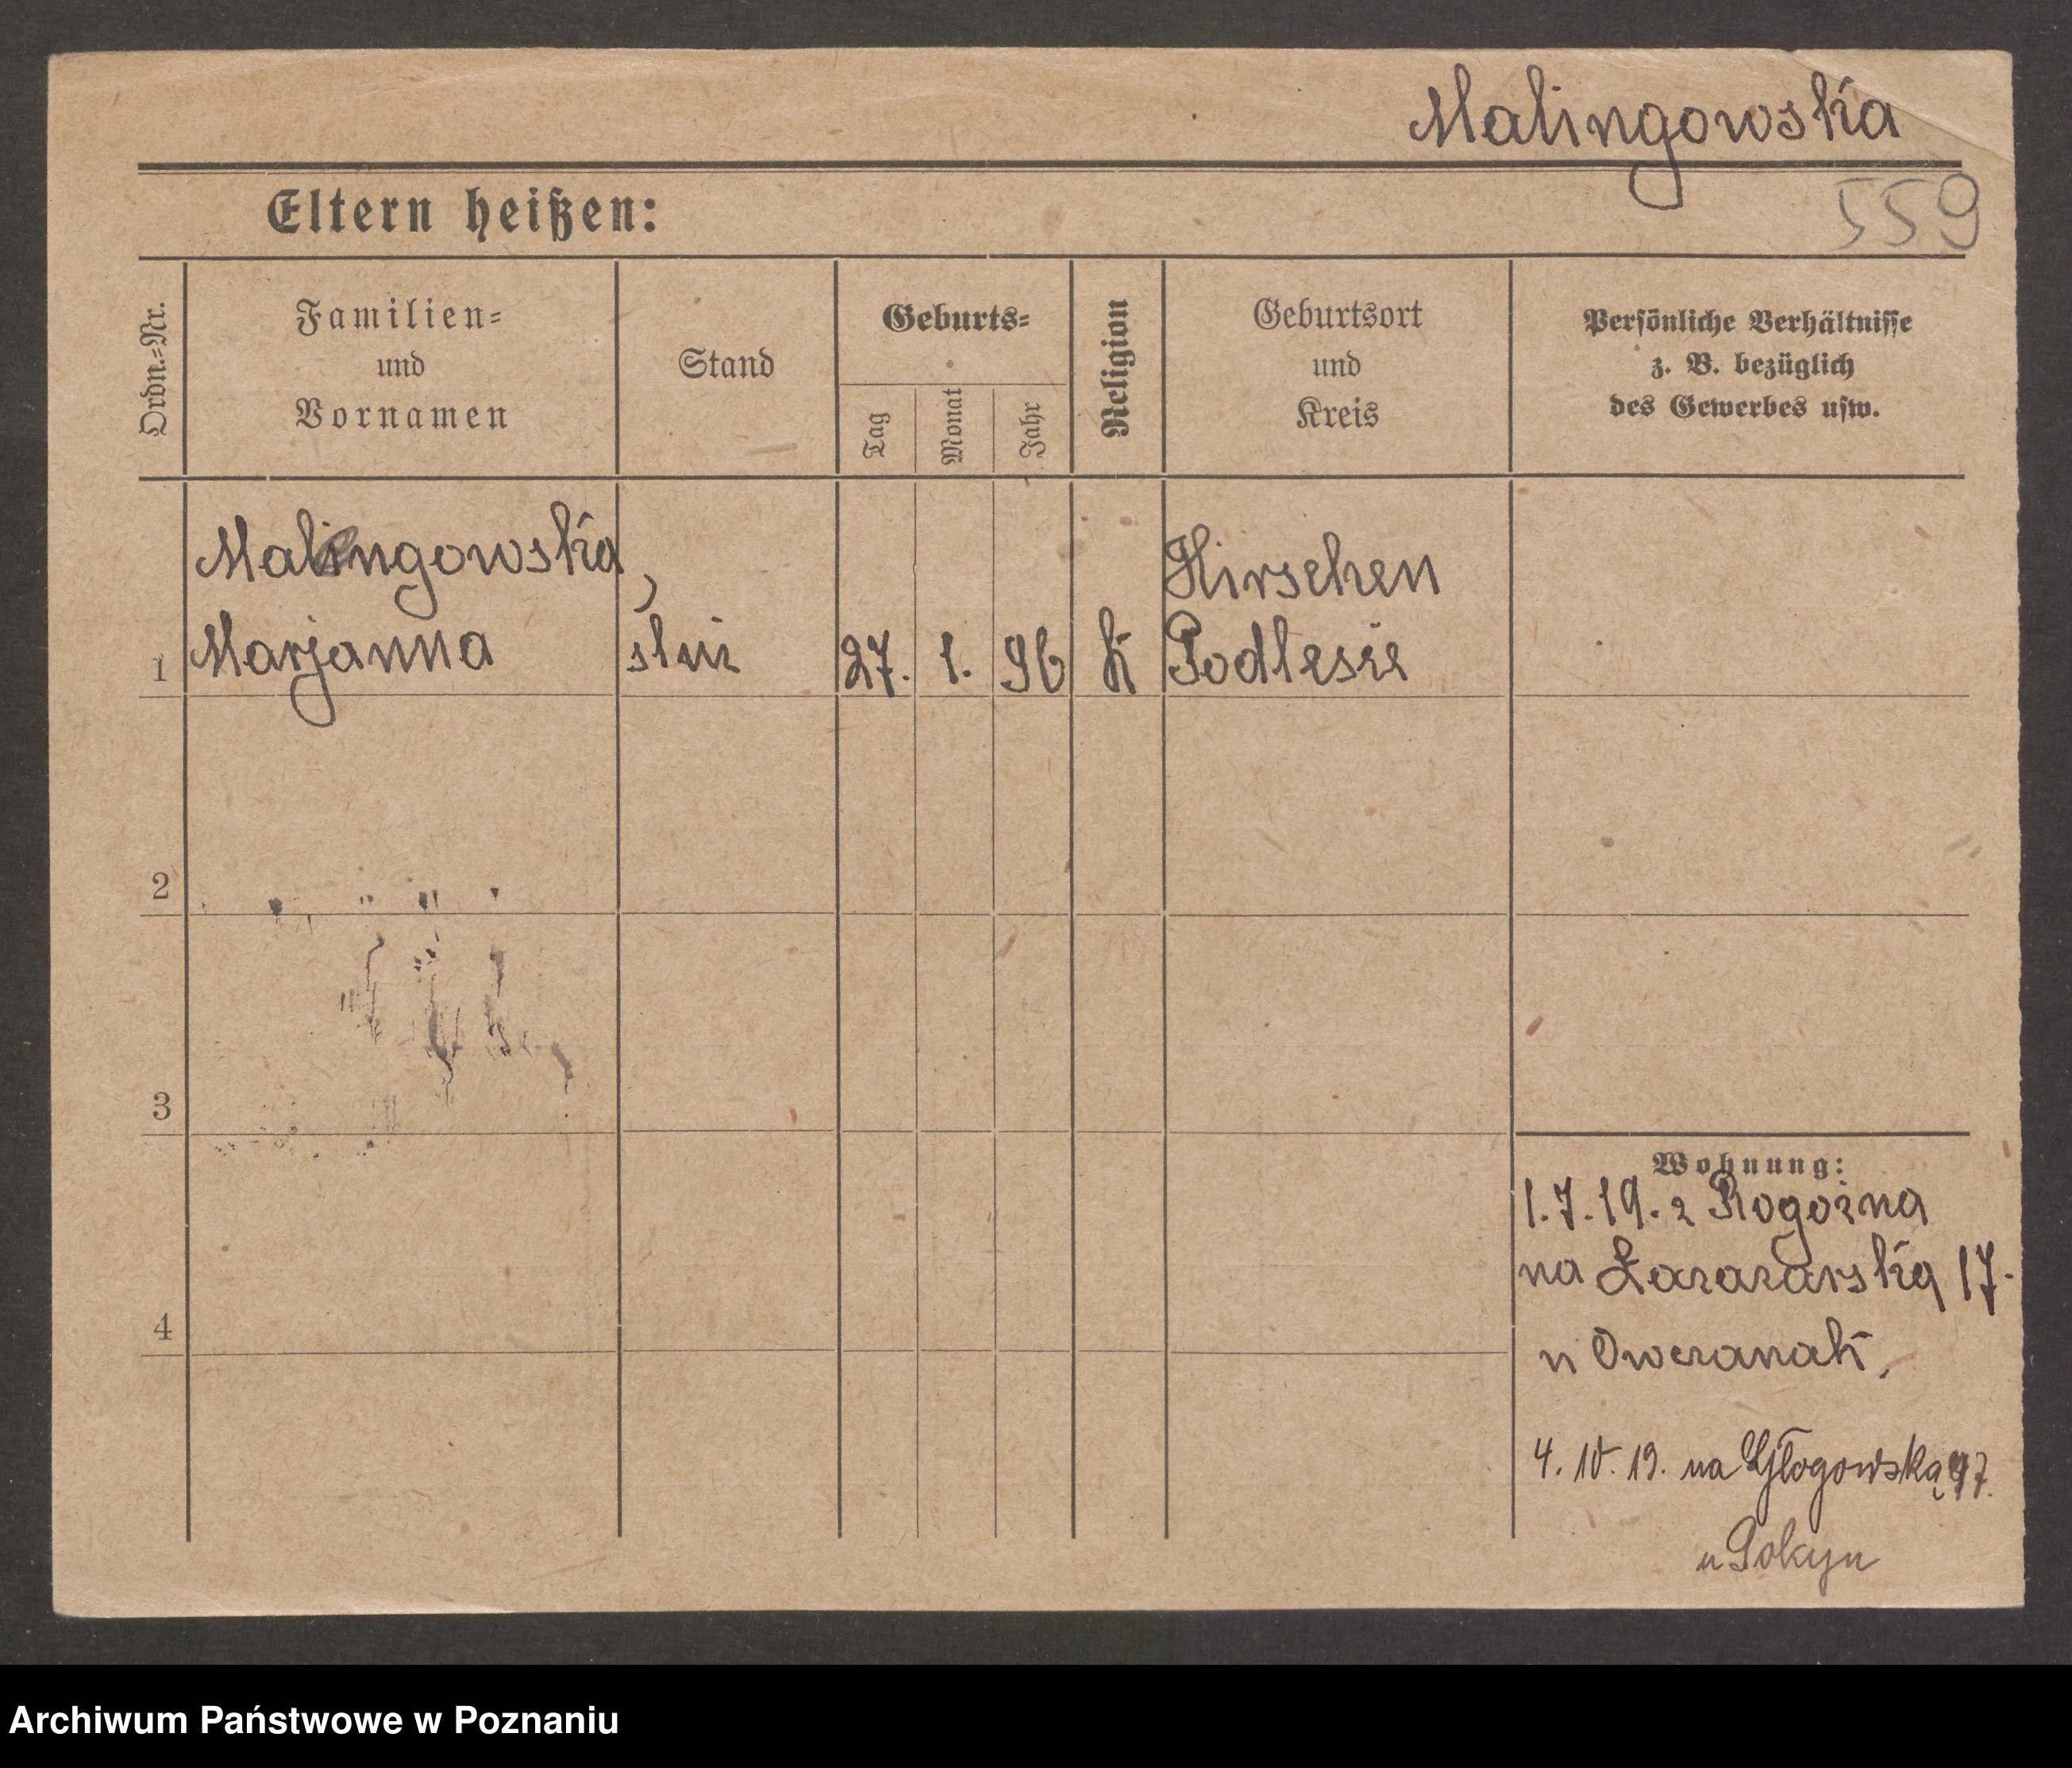 Malingowska
559
Eltern heißen:
Ordn.-Nr.
Familien-
und
Vornamen
Stand
Geburts-
Tag
Monat
Jahr
Religion
Geburtsort
und
Kreis
Persönliche Verhältnisse
z. B. bezüglich
des Gewerbes usw.
Malingowska,
Marjanna
1
27. 1. 96 K
Hirschen
Podlesie
2
3
4
Wohnung:
1.7.19. z Rogoźna
na Łazararską 17.
u Owczarzak.
4.10.19. na Głogowską 97.